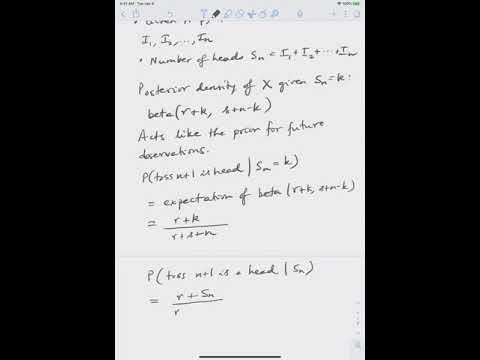 I₁, I₂, ..., Iₙ
• Number of heads Sₙ = I₁ + I₂ + ... + Iₙ
Posterior density of X given Sₙ = k:
beta(r+k, s+n-k)
Acts like the prior for future
observations.
P(toss n+1 is head | Sₙ = k)
= expectation of beta (r+k, s+n-k)
= r+k / r+s+n
P(toss n+1 is a head | Sₙ)
= r + Sₙ / r